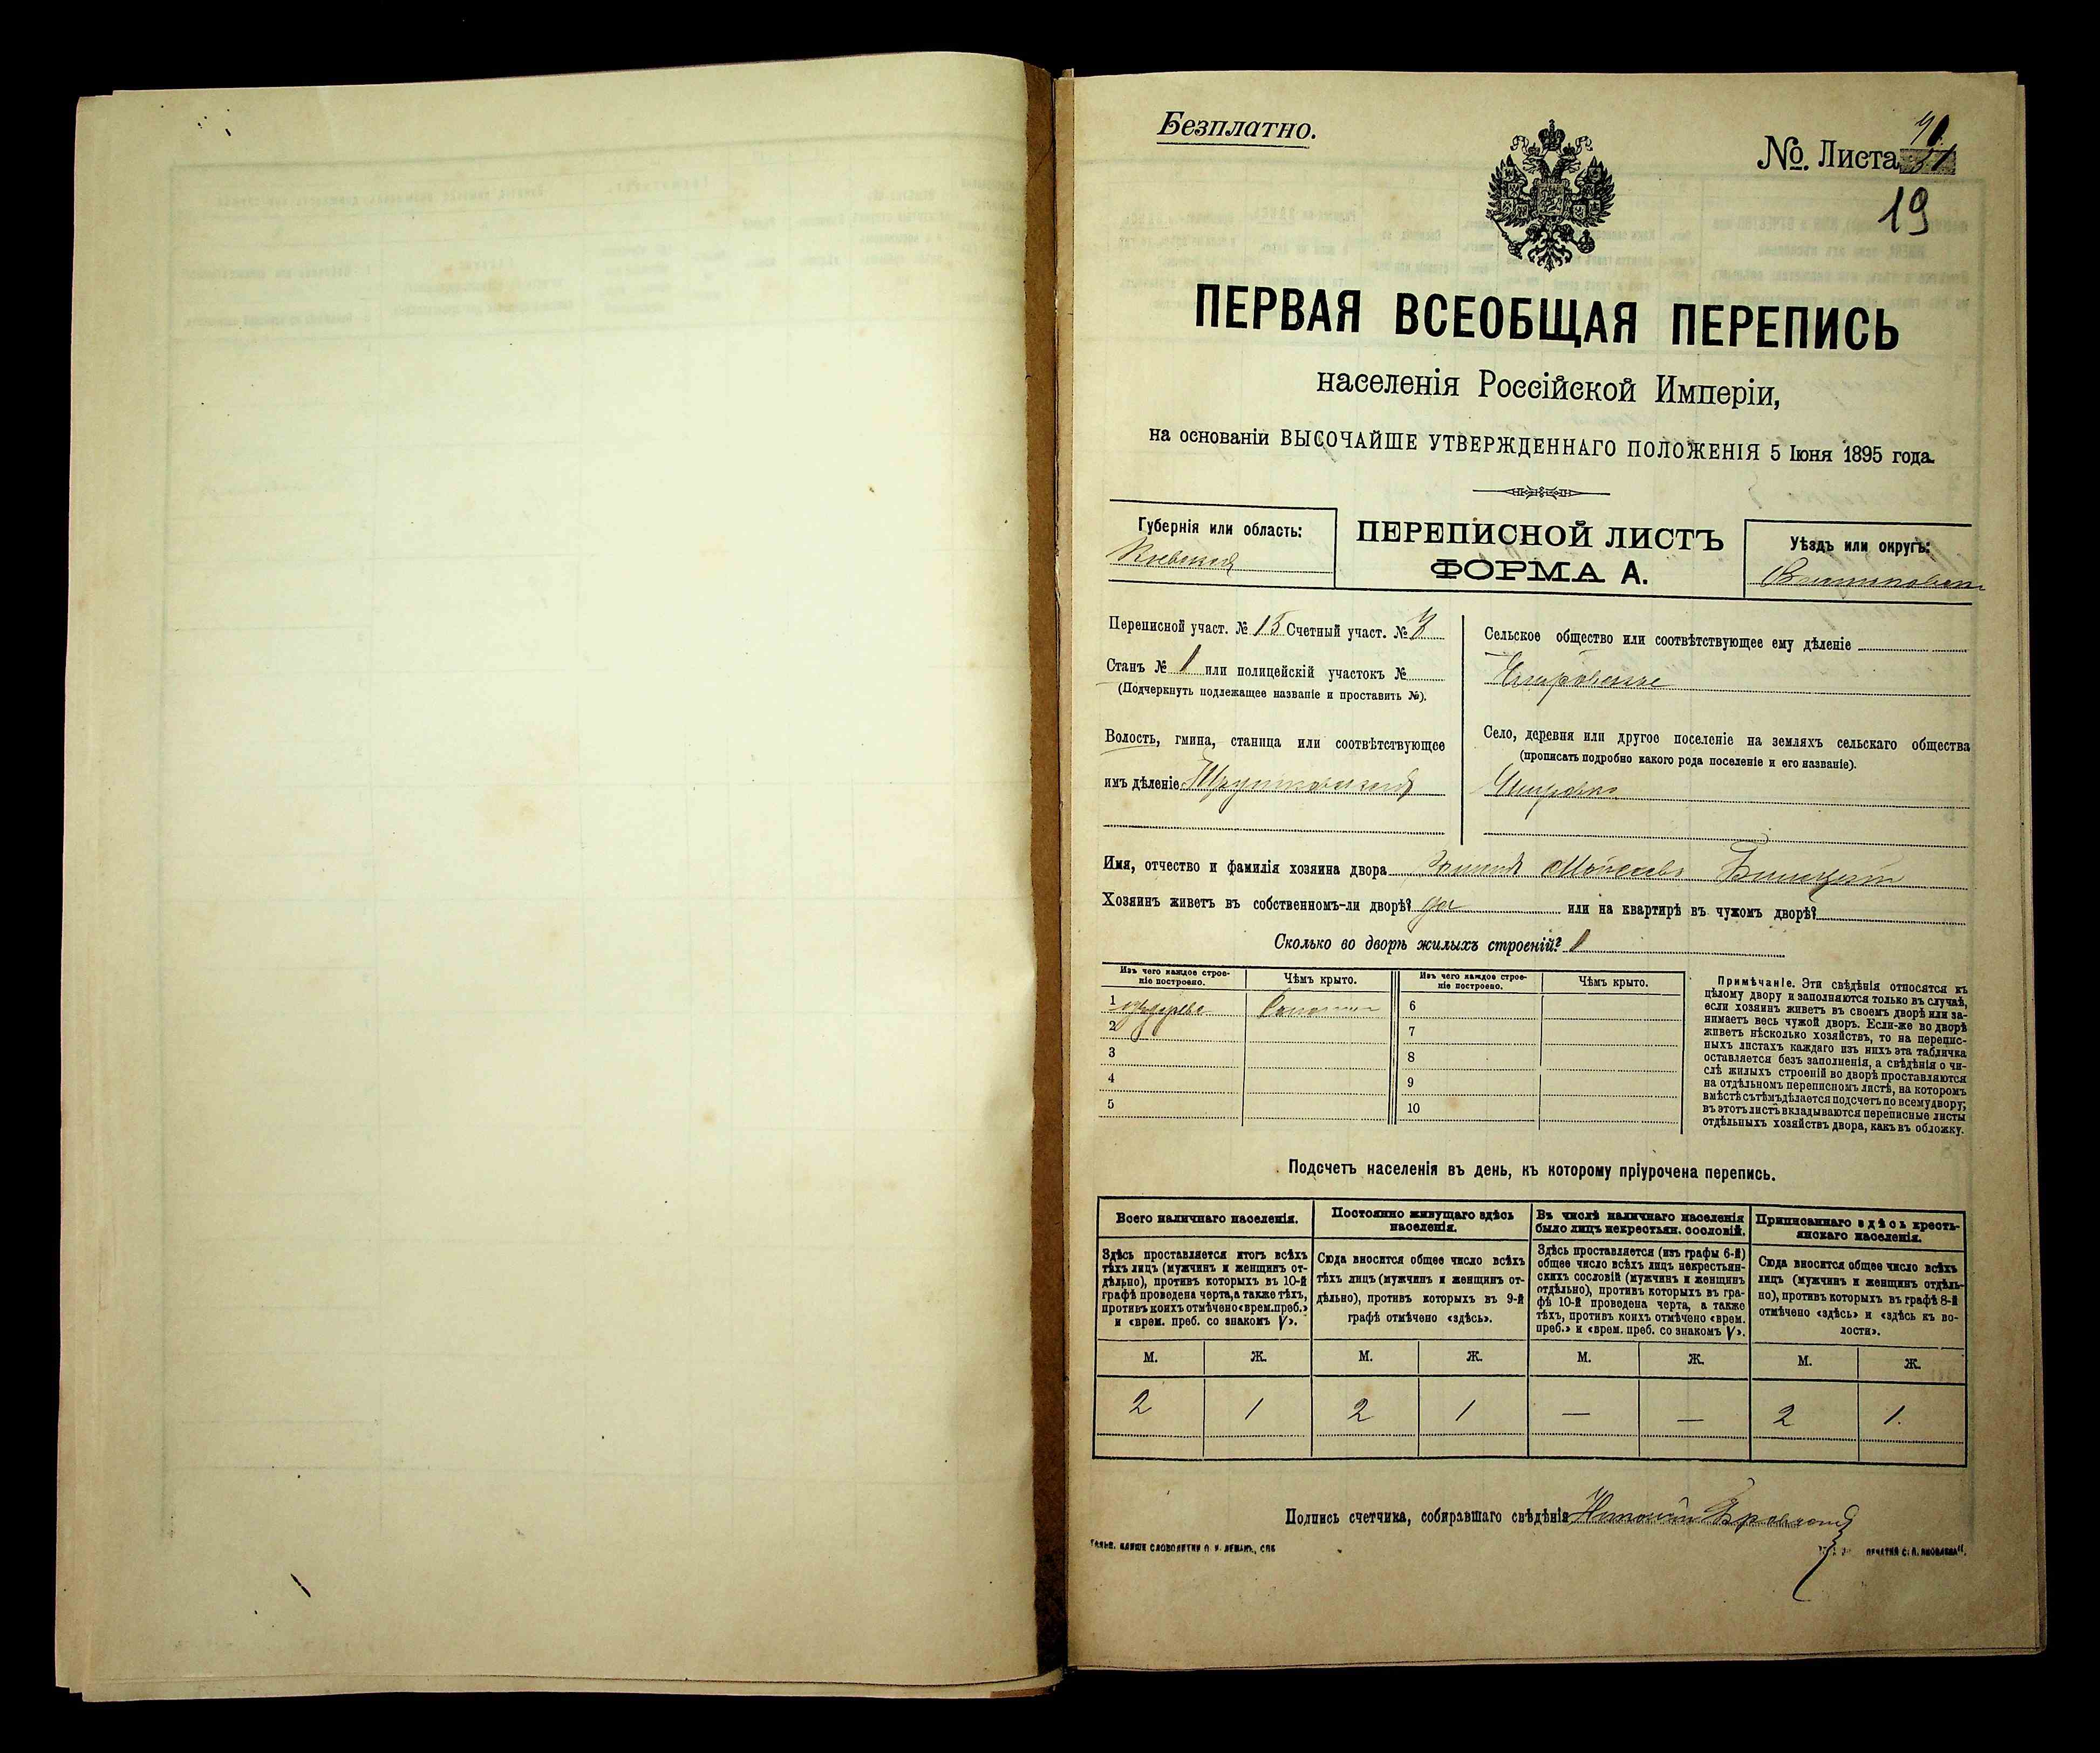 Безплатно.
№. Листа
19
ПЕРВАЯ ВСЕОБЩАЯ ПЕРЕПИСЬ
населенія Россійской Имперіи,
на основаніи ВЫСОЧАЙШЕ УТВЕРЖДЕННАГО ПОЛОЖЕНІЯ 5 Іюня 1895 года.
Губернія или область:
Кіевская
ПЕРЕПИСНОЙ ЛИСТЪ
ФОРМА А.
Уѣздъ или округъ:
Переписной участ. № 15 Счетный участ. № 3
Станъ № 1 или полицейскій участокъ №
(Подчеркнуть подлежащее названіе и проставить №).
Волость, гмина, станица или соотвѣтствующее
имъ дѣленіе
Сельское общество или соотвѣтствующее ему дѣленіе
Село, деревня или другое поселеніе на земляхъ сельскаго общества
(прописать подробно какого рода поселеніе и его названіе).
Имя, отчество и фамилія хозяина двора
Хозяинъ живетъ въ собственномъ-ли дворѣ? да или на квартирѣ въ чужомъ дворѣ?
Сколько во дворѣ жилыхъ строеній? 1
Изъ чего каждое строе-
ніе построено.
Чѣмъ крыто.
Изъ чего каждое строе-
ніе построено.
Чѣмъ крыто.
1 издерева Соломою 6
2 7
3 8
4 9
5 10
Примѣчаніе. Эти свѣдѣнія относятся къ
цѣлому двору и заполняются только въ случаѣ,
если хозяинъ живетъ въ своемъ дворѣ или за-
нимаетъ весь чужой дворъ. Если-же во дворѣ
живетъ нѣсколько хозяйствъ, то на перепис-
ныхъ листахъ каждаго изъ нихъ эта табличка
оставляется безъ заполненія, а свѣдѣнія о чи-
слѣ жилыхъ строеній во дворѣ проставляются
на отдѣльномъ переписномъ листѣ, на которомъ
вмѣстѣ съ тѣмъ дѣлается подсчетъ по всему двору;
въ этотъ листъ вкладываются переписные листы
отдѣльныхъ хозяйствъ двора, какъ въ обложку.
Подсчетъ населенія въ день, къ которому пріурочена перепись.
Всего наличнаго населенія.
Здѣсь проставляется итогъ всѣхъ
тѣхъ лицъ (мужчинъ и женщинъ от-
дѣльно), противъ которыхъ въ 10-й
графѣ проведена черта, а также тѣхъ,
противъ коихъ отмѣчено «врем. преб.»
и «врем. преб. со знакомъ V».
Постоянно живущаго здѣсь
населенія.
Сюда вносится общее число всѣхъ
тѣхъ лицъ (мужчинъ и женщинъ от-
дѣльно), противъ которыхъ въ 9-й
графѣ отмѣчено «здѣсь».
Въ числѣ наличнаго населенія
было лицъ некрестьян. сословій.
Здѣсь проставляется (изъ графы 6-й)
общее число всѣхъ лицъ некрестьян-
скихъ сословій (мужчинъ и женщинъ
отдѣльно), противъ которыхъ въ гра-
фѣ 10-й проведена черта, а также
тѣхъ, противъ коихъ отмѣчено «врем.
преб.» и «врем. преб. со знакомъ V».
Приписаннаго здѣсь кресть-
янскаго населенія.
Сюда вносится общее число всѣхъ
лицъ (мужчинъ и женщинъ отдѣль-
но), противъ которыхъ въ графѣ 8-й
отмѣчено «здѣсь» и «здѣсь въ во-
лости».
М. Ж. М. Ж. М. Ж. М. Ж.
2 1 2 1 — — 2 1
Подпись счетчика, собиравшаго свѣдѣнія